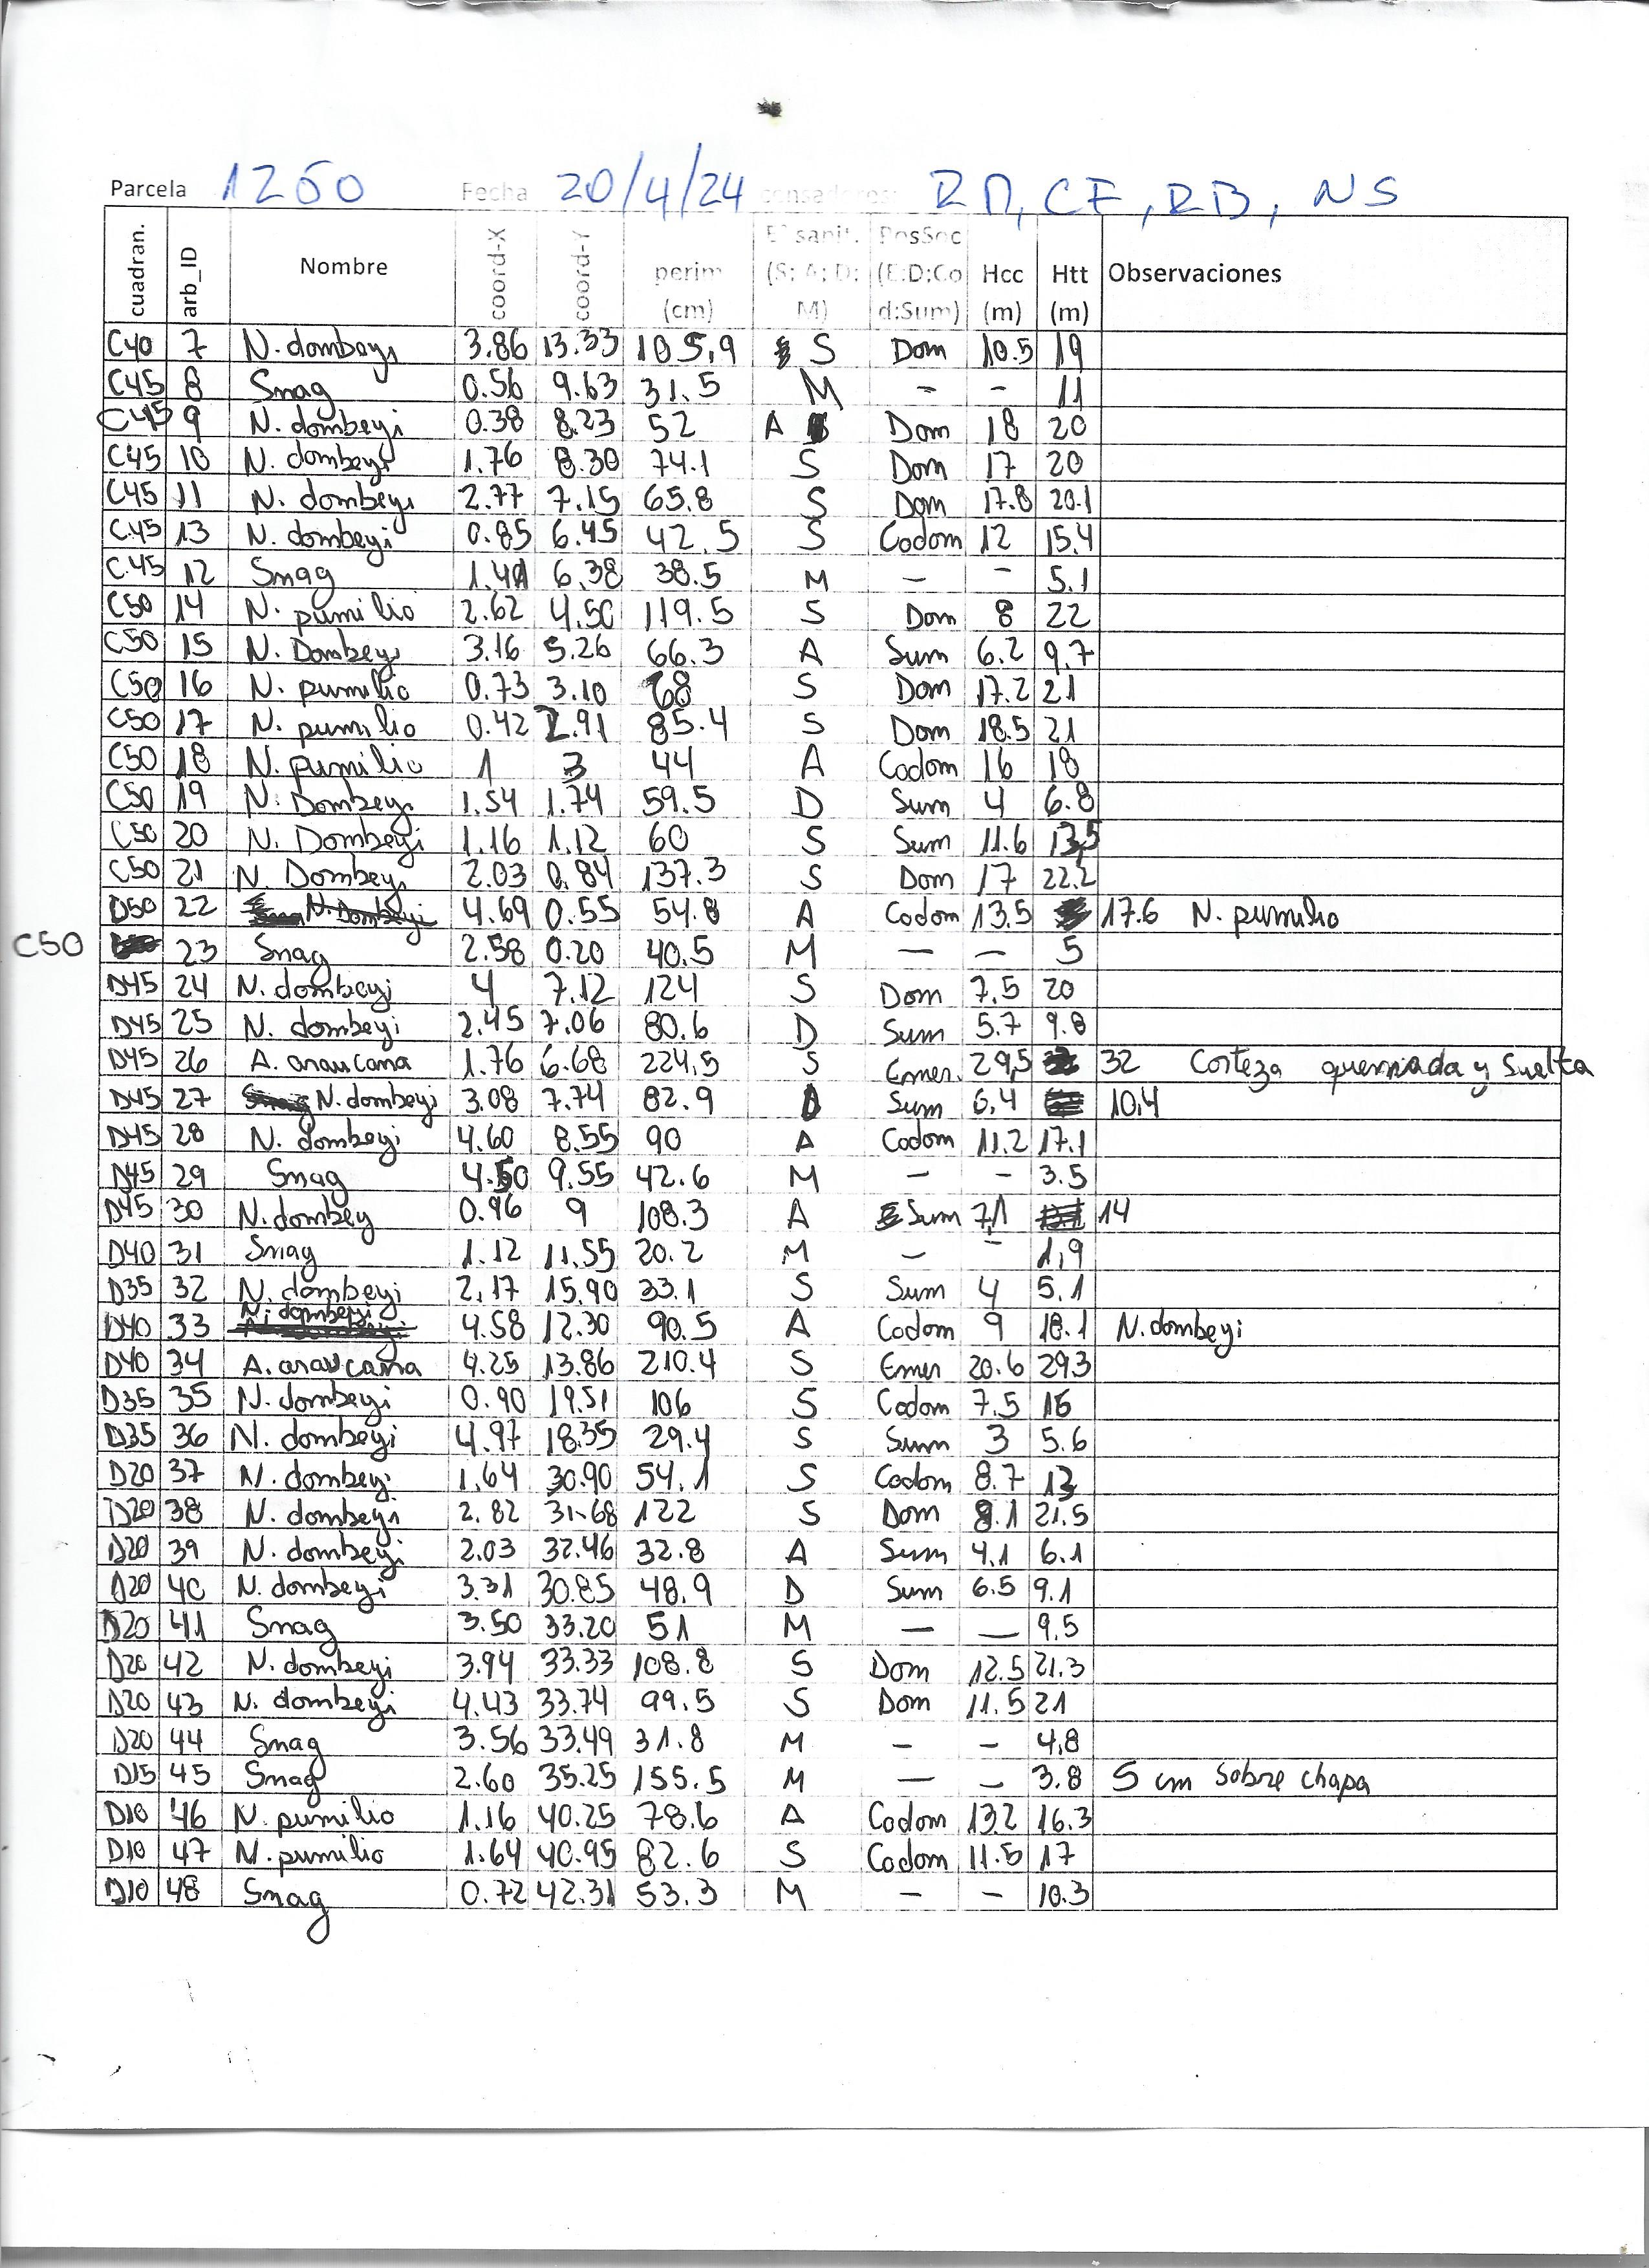 Parcela 1260 Fecha 20/4/24 censadores: RM, CF, RB, NS
cuadran. arb_ID Nombre coord-X coord-Y perim (cm) E° sanit. (S; A; D; M) PosSoc (E;D;Cod;Sum) Hcc (m) Htt (m) Observaciones
C40 7 N. dombeyi 3.86 13.33 105,9 S Dom 10.5 19
C45 8 Snag 0.56 9.63 31.5 M – – 11
C45 9 N. dombeyi 0.38 8.23 52 A Dom 18 20
C45 10 N. dombeyi 1.76 8.30 74.1 S Dom 17 20
C45 11 N. dombeyi 2.77 7.15 65.8 S Dom 17.8 20.1
C45 13 N. dombeyi 0.85 6.45 42.5 S Codom 12 15.4
C.45 12 Snag 1.41 6.38 38.5 M – – 5.1
C50 14 N. pumilio 2.62 4.50 119.5 S Dom 8 22
C50 15 N. Dombeyi 3.16 5.26 66.3 A Sum 6.2 9.7
C50 16 N. pumilio 0.73 3.10 68 S Dom 17.2 21
C50 17 N. pumilio 0.42 2.91 85.4 S Dom 18.5 21
C50 18 N. pumilio 1 3 44 A Codom 16 18
C50 19 N. Dombeyi 1.54 1.74 59.5 D Sum 4 6.8
C50 20 N. Dombeyi 1.16 1.12 60 S Sum 11.6 13,5
C50 21 N. Dombeyi 2.03 0.84 137.3 S Dom 17 22.2
D50 22 N. Dombeyi 4.69 0.55 54.8 A Codom 13.5 17.6 N. pumilio
C50 23 Snag 2.58 0.20 40.5 M – – 5
D45 24 N. dombeyi 4 7.12 124 S Dom 7.5 20
D45 25 N. dombeyi 2.45 7.06 80.6 D Sum 5.7 9.8
D45 26 A. araucana 1.76 6.68 224,5 S Emer. 29,5 32 Corteza quemada y Suelta
D45 27 N. dombeyi 3.08 7.74 82.9 D Sum 6,4 10,4
D45 28 N. dombeyi 4.60 8.55 90 A Codom 11.2 17.1
D45 29 Snag 4.50 9.55 42.6 M – – 3.5
D45 30 N. dombey 0.96 9 108.3 A Sum 7,1 14
D40 31 Snag 1.12 11.55 20.2 M – – 1,9
D35 32 N. dombeyi 2,17 15,90 33.1 S Sum 4 5.1
D40 33 N. dombeyi 4.58 12.30 90.5 A Codom 9 18.1 N. dombeyi
D40 34 A. araucana 4.25 13.86 210.4 S Emer 20.6 29.3
D35 35 N. dombeyi 0.90 19.51 106 S Codom 7.5 16
D35 36 N. dombeyi 4.97 18.35 29.4 S Sum 3 5.6
D20 37 N. dombeyi 1,64 30.90 54.1 S Codom 8.7 13
D20 38 N. dombeyi 2.82 31.68 122 S Dom 8.1 21.5
D20 39 N. dombeyi 2.03 32.46 32.8 A Sum 4,1 6.1
D20 40 N. dombeyi 3.31 30.85 48.9 D Sum 6.5 9.1
D20 41 Snag 3.50 33.20 51 M – – 9,5
D20 42 N. dombeyi 3.94 33.33 108.8 S Dom 12.5 21.3
D20 43 N. dombeyi 4.43 33.74 99.5 S Dom 11.5 21
D20 44 Snag 3.56 33.49 31.8 M – – 4,8
D15 45 Snag 2.60 35.25 155.5 M – – 3.8 5 cm Sobre chapa
D10 46 N. pumilio 1.16 40.25 78.6 A Codom 13.2 16.3
D10 47 N. pumilio 1.64 40.95 82.6 S Codom 11.5 17
D10 48 Snag 0.72 42.31 53.3 M – – 10.3